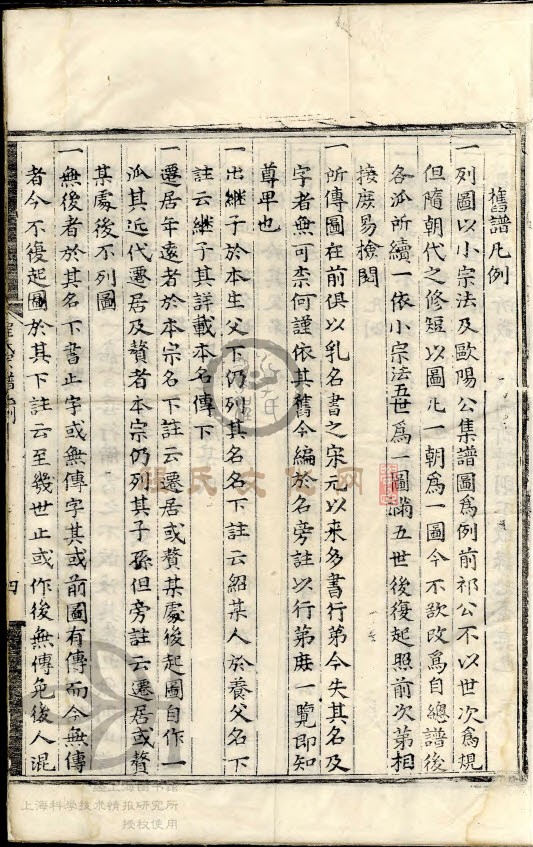 舊譜凡例
一列圖以小宗法及歐陽公集譜圖爲例前祁公不以世次爲規
但隋朝代之修短以圖凡一朝爲一圖今不欲改爲自總譜後
各派所續一依小宗法五世爲一圖滿五世後復起照前次第相
接庻易檢閱
一所傳圖在前俱以乳名書之宋元以來多書行弟今失其名及
字者無可柰何謹依其舊今編於名旁註以行弟庥一覽即知
尊卑也
一出繼子於本生父下仍列其名名下註云紹某人於養父名下
註云繼子其詳載本名傳下
一遷居年遠者於本宗名下註云遷居或贅某處後起圖自作一
派其近代遷居及贅者本宗仍列其子孫但旁註云遷居或贅
某處後不列圖
一無後者於其名下書止字或無傳字其或前圖有傳而今無傳
者今不復起圖於其下註云至幾世止或作後無傳免後人混
四
程氏文化网
上海图书馆
上海科学技术情报研究所
授权使用